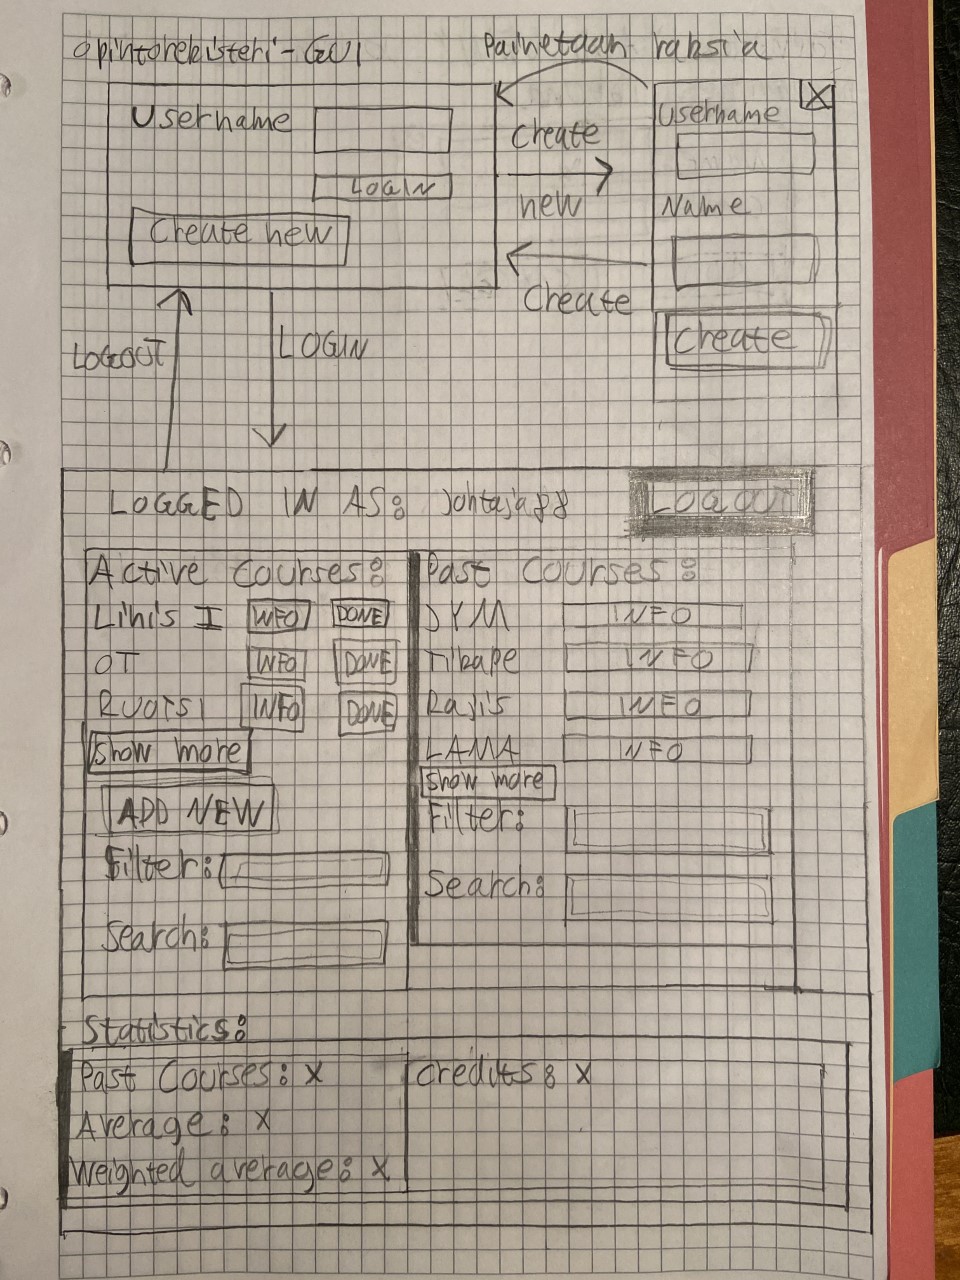 opintorekisteri-GUI
Painetaan raksia
Username
LOGIN
Create new
Create
new
Create
X
Username
Name
Create
LOGOUT
LOGIN
LOGGED IN AS: Johtaja88
LOGOUT
Active Courses:
Linis I INFO DONE
OT INFO DONE
Ruotsi INFO DONE
Show more
ADD NEW
Filter:
Search:
Past Courses:
JYM INFO
Tikape INFO
Rajis INFO
LAMA INFO
Show more
Filter:
Search:
Statistics:
Past Courses: X
Average: X
Weighted average: X
Credits: X